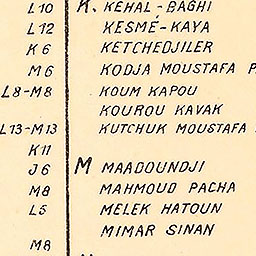 L10 K. KEHAL-BAGHI
L12 KESMÉ-KAYA
K6 KETCHEDJILER
M6 KODJA MOUSTAFA P
L8-M8 KOUM KAPOU
KOUROU KAVAK
L13-M13 KUTCHUK MOUSTAFA
K11
J6 M MAADOUNDJI
M8 MAHMOUD PACHA
L5 MELEK HATOUN
MIMAR SINAN
M8